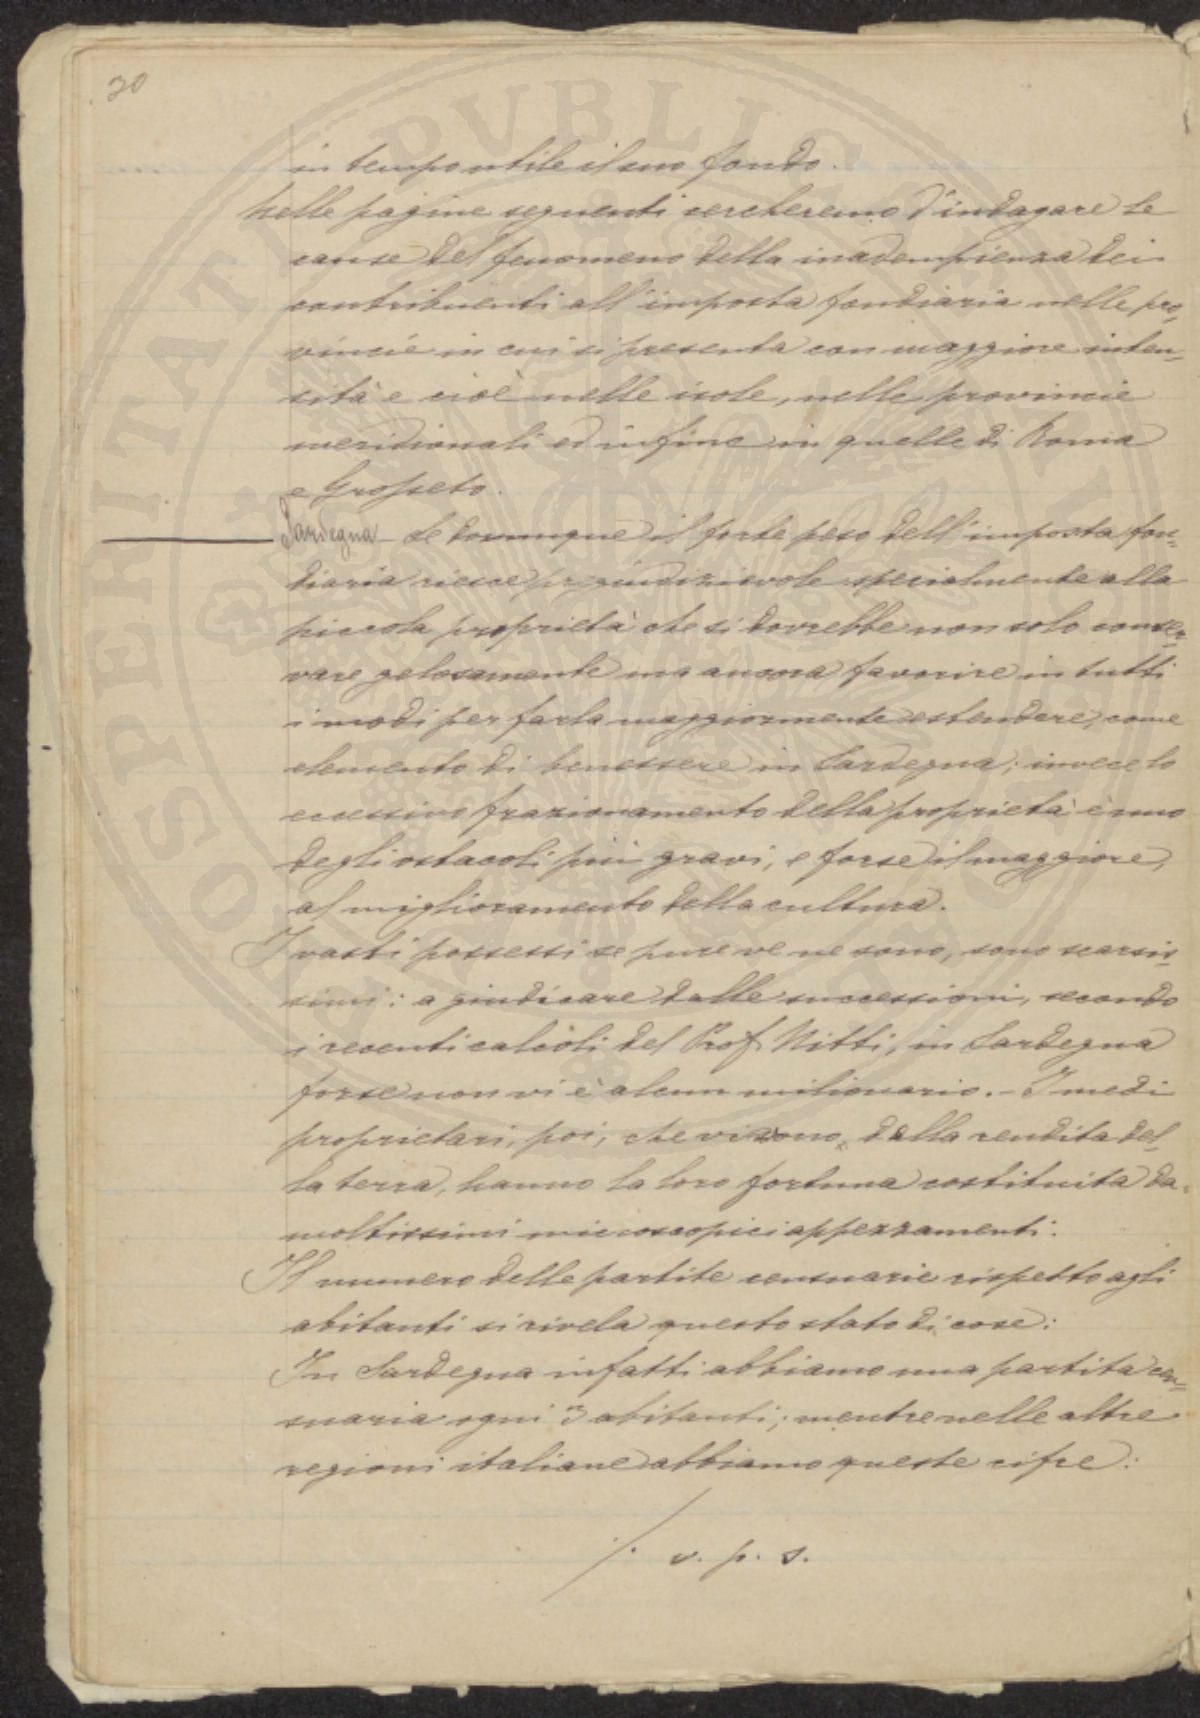 20
in tempo utile il suo fondo.
Nelle pagine seguenti cercheremo d'indagare le
cause del fenomeno della inadempienza dei
contribuenti all'imposta fondiaria nelle pro-
vincie in cui si presenta con maggiore inten-
sità e cioè nelle isole, nelle provincie
meridionali ed infine in quelle di Roma
e Grosseto.
Sardegna - Se dovunque il forte peso dell'imposta fon-
diaria riesce pregiudizievole specialmente alla
piccola proprietà che si dovrebbe non solo conser-
vare gelosamente ma ancora favorire in tutti
i modi per farla maggiormente estendere, come
elemento di benessere in Sardegna; invece lo
eccessivo frazionamento della proprietà è uno
degli ostacoli più gravi, e forse il maggiore,
al miglioramento della cultura.
I vasti possessi se pure ve ne sono, sono scarsis-
simi: a giudicare dalle successioni, secondo
i recenti calcoli del Prof. Nitti, in Sardegna
forse non vi è alcun milionario. - I medi
proprietari, poi, che vivono, dalla rendita del-
la terra, hanno la loro fortuna costituita da
moltissimi microscopici appezzamenti.
Il numero delle partite censuarie rispetto agli
abitanti si rivela questo stato di cose:
In Sardegna infatti abbiamo una partita cen-
suaria ogni 3 abitanti; mentre nelle altre
regioni italiane abbiamo queste cifre:
./. v. p. s.
HOSPITALITATI PVBLICAE